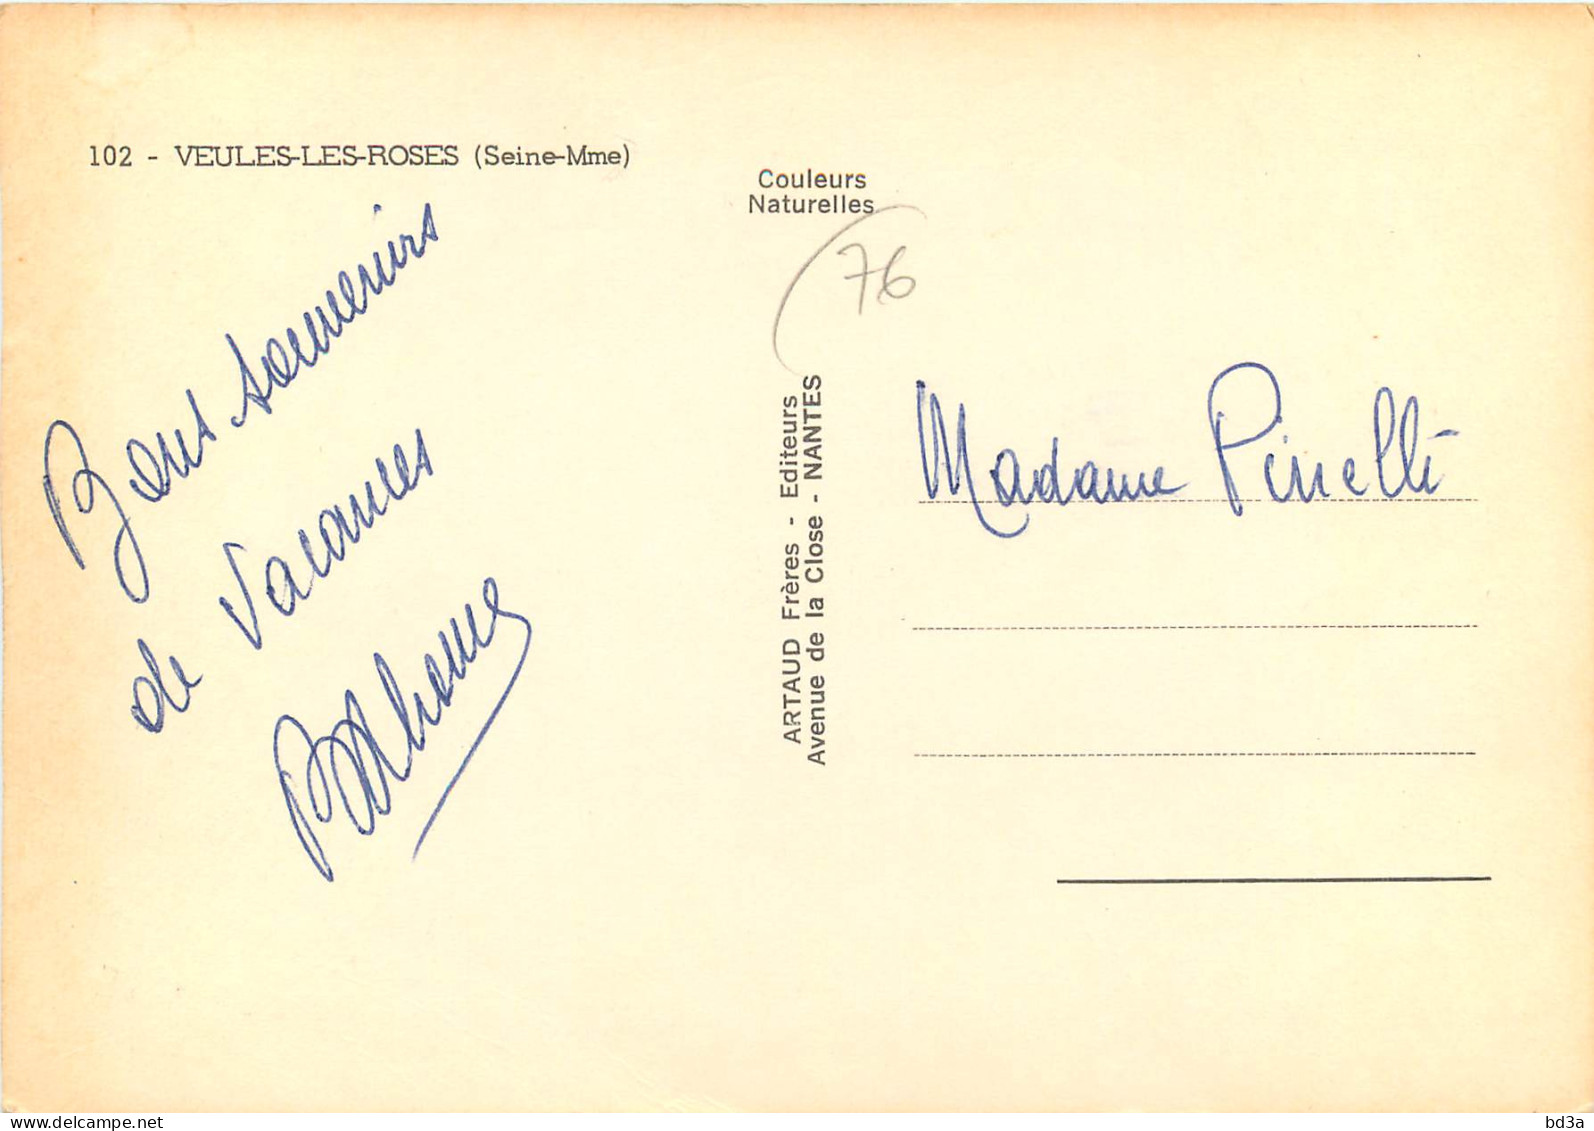 102 - VEULES-LES-ROSES (Seine-Mme)
Bons souvenirs
de Vacances
Couleurs
Naturelles
76
ARTAUD Frères - Editeurs
Avenue de la Close - NANTES
Madame Pinelli
delcampe.net
bd3a